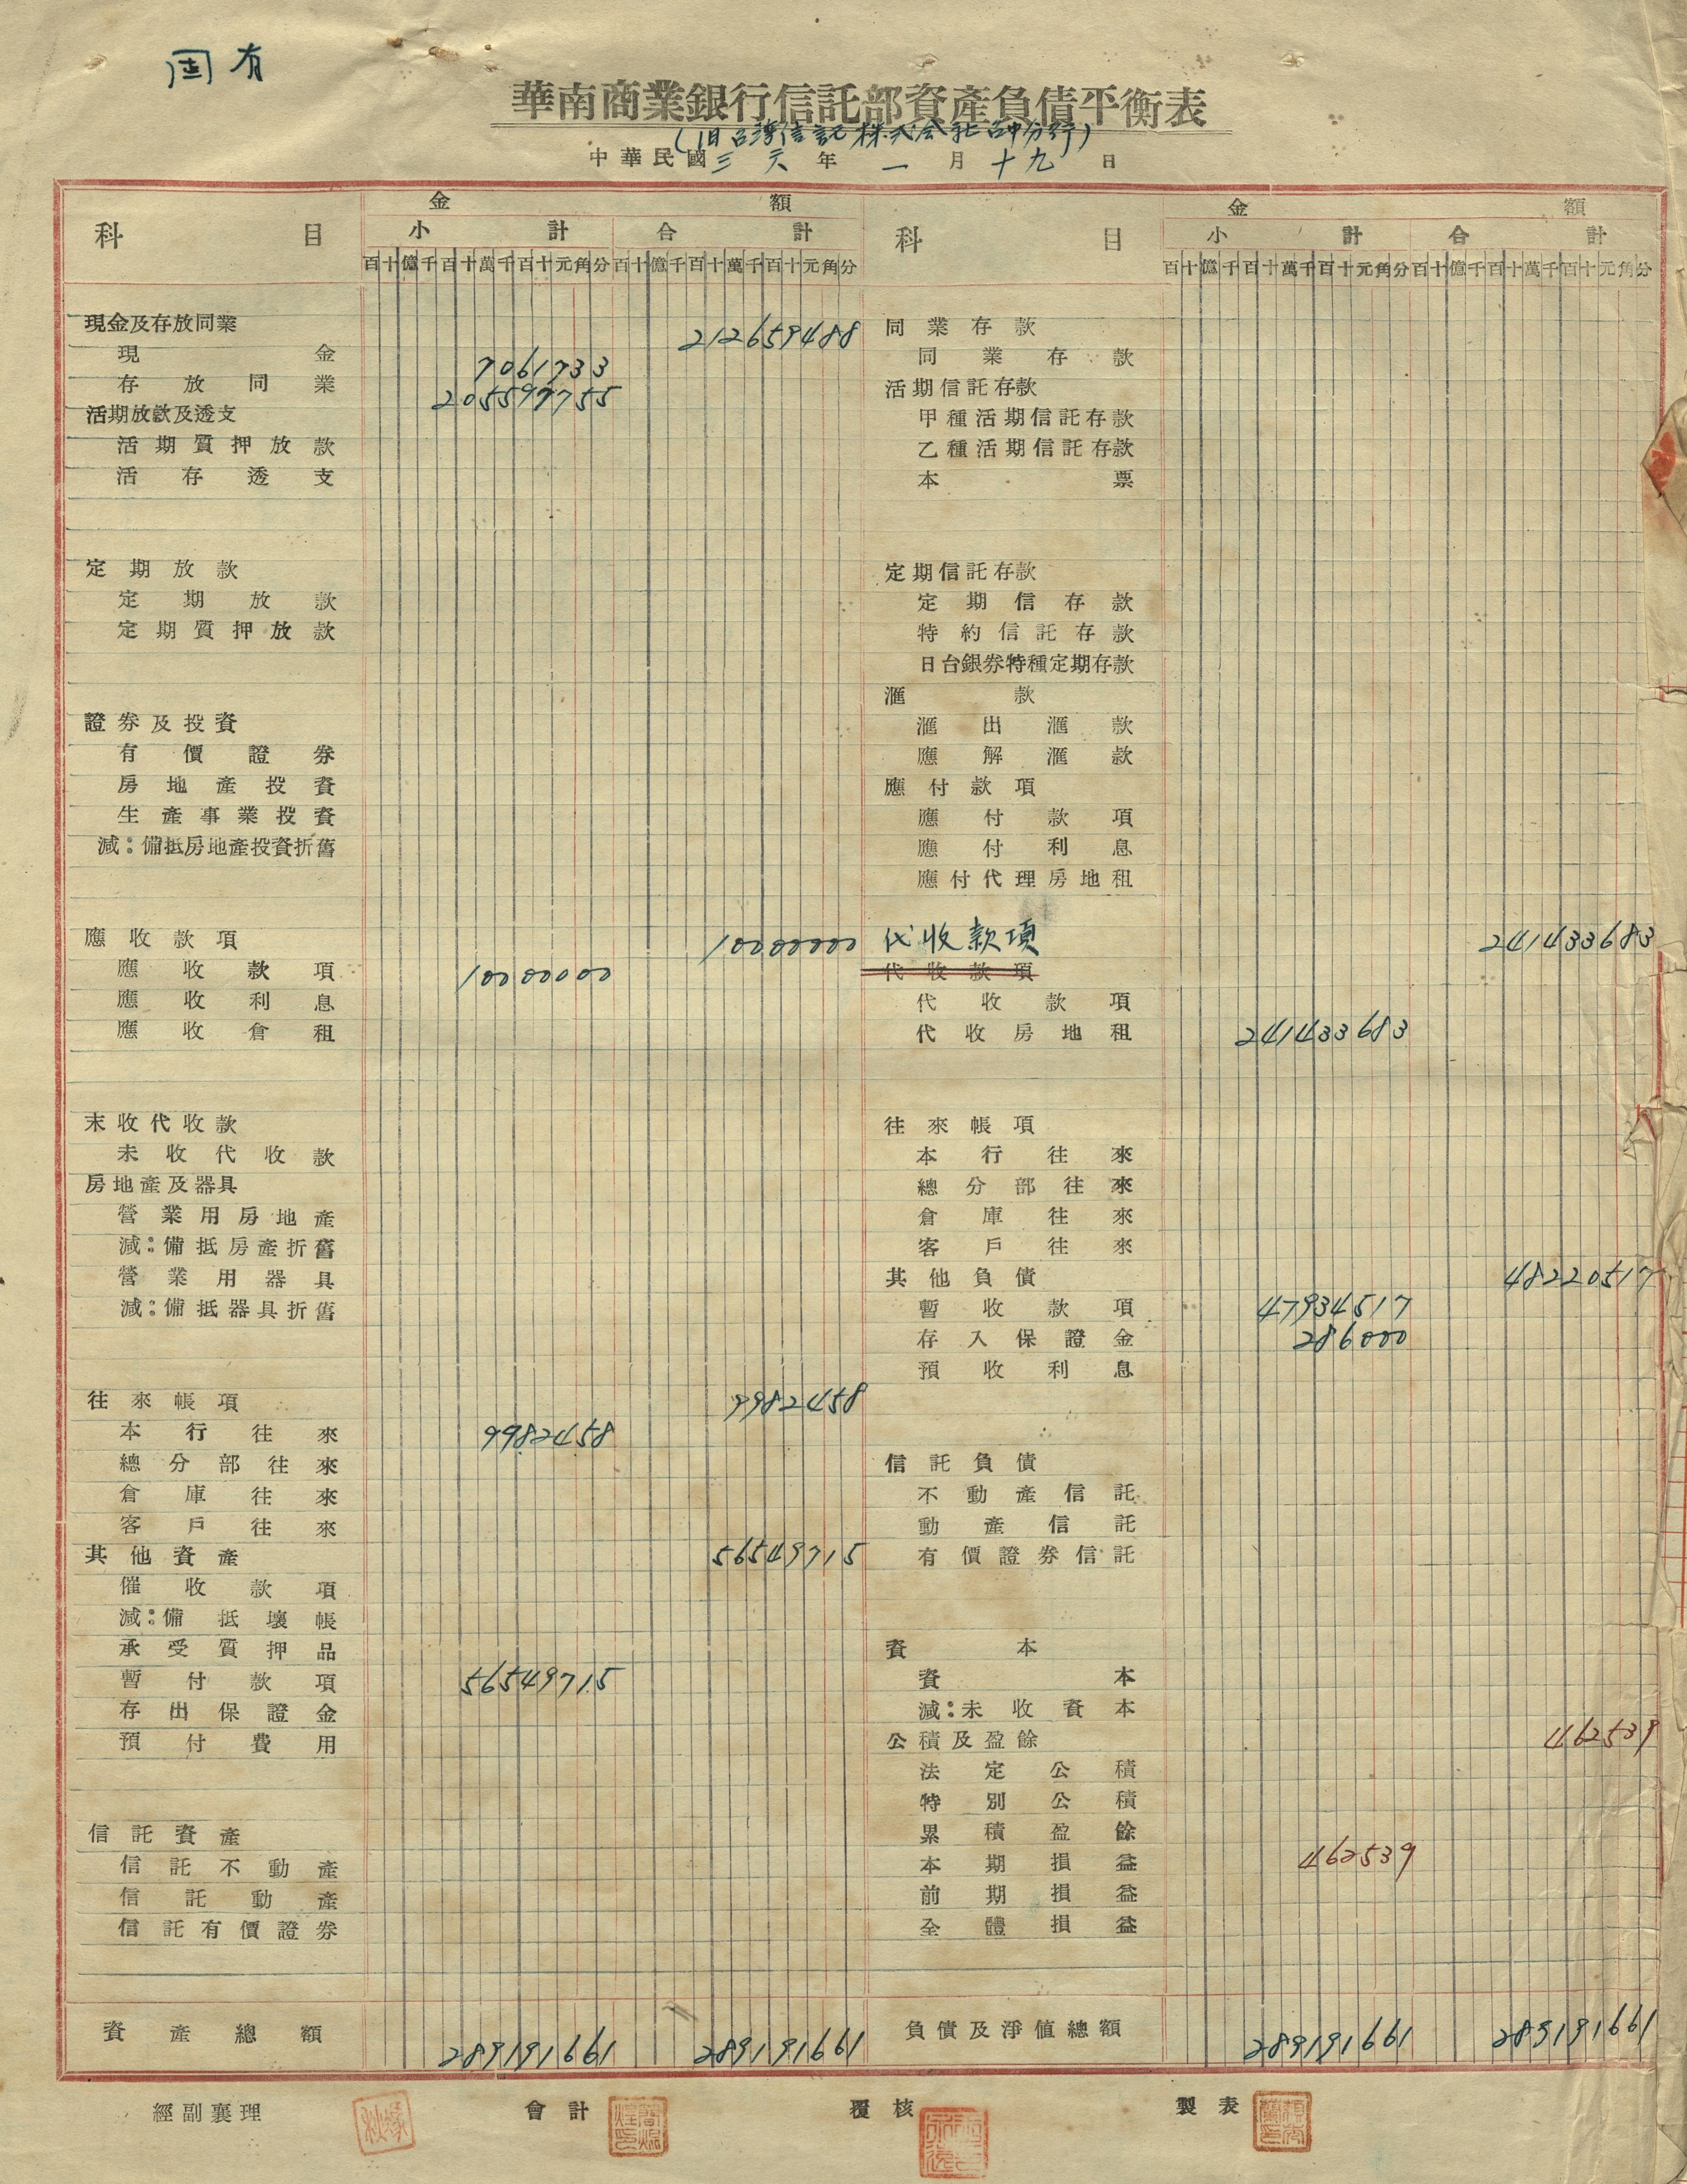 固有
華南商業銀行信託部資產負債平衡表
(旧台湾信託株式会社台中分行)
中華民國三六年一月十九日
科目 金額 科目 金額
小計 合計 小計 合計
百十億千百十萬千百十元角分 百十億千百十萬千百十元角分 百十億千百十萬千百十元角分 百十億千百十萬千百十元角分
現金及存放同業 212659488 同業存款
現金 7061733 同業存款
存放同業 205597755 活期信託存款
活期放款及透支 甲種活期信託存款
活期質押放款 乙種活期信託存款
活存透支 本票
定期放款 定期信託存款
定期放款 定期信存款
定期質押放款 特約信託存款
日台銀券特種定期存款
滙款
證券及投資 滙出滙款
有價證券 應解滙款
房地產投資 應付款項
生產事業投資 應付款項
減:備抵房地產投資折舊 應付利息
應付代理房地租
應收款項 10000000 代收款項 241433683
應收款項 10000000 代收款項
應收利息 代收款項
應收倉租 代收房地租 241433683
末收代收款 往來帳項
未收代收款 本行往來
房地產及器具 總分部往來
營業用房地產 倉庫往來
減:備抵房產折舊 客戶往來
營業用器具 其他負債 48220517
減:備抵器具折舊 暫收款項 47934517
存入保證金 286000
預收利息
往來帳項 9982458
本行往來 9982458
總分部往來 信託負債
倉庫往來 不動產信託
客戶往來 動產信託
其他資產 56549715 有價證券信託
催收款項
減:備抵壞帳
承受質押品 資本
暫付款項 56549715 資本
存出保證金 減:未收資本
預付費用 公積及盈餘 462539
法定公積
特別公積
信託資產 累積盈餘
信託不動產 本期損益 462539
信託動產 前期損益
信託有價證券 全體損益
資產總額 289191661 289191661 負債及淨值總額 289191661 289191661
經副襄理 會計 覆核 製表